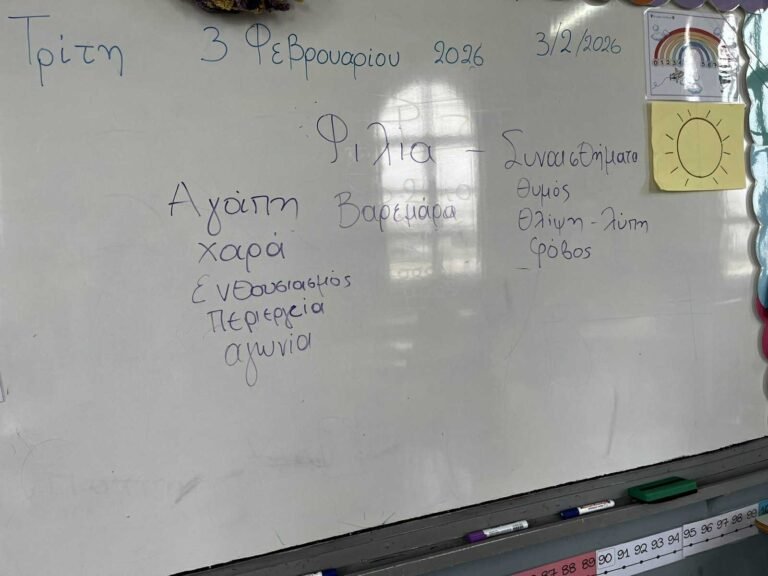 Τρίτη 3 Φεβρουαρίου 2026 3/2/2026
Φιλία - Συναισθήματα
Αγάπη Βαρεμάρα Θυμός
χαρά Θλίψη - λύπη
Ενθουσιασμός φόβος
περιέργεια
αγωνία
87 88 89 90 91 92 93 94 95 96 97 98 99